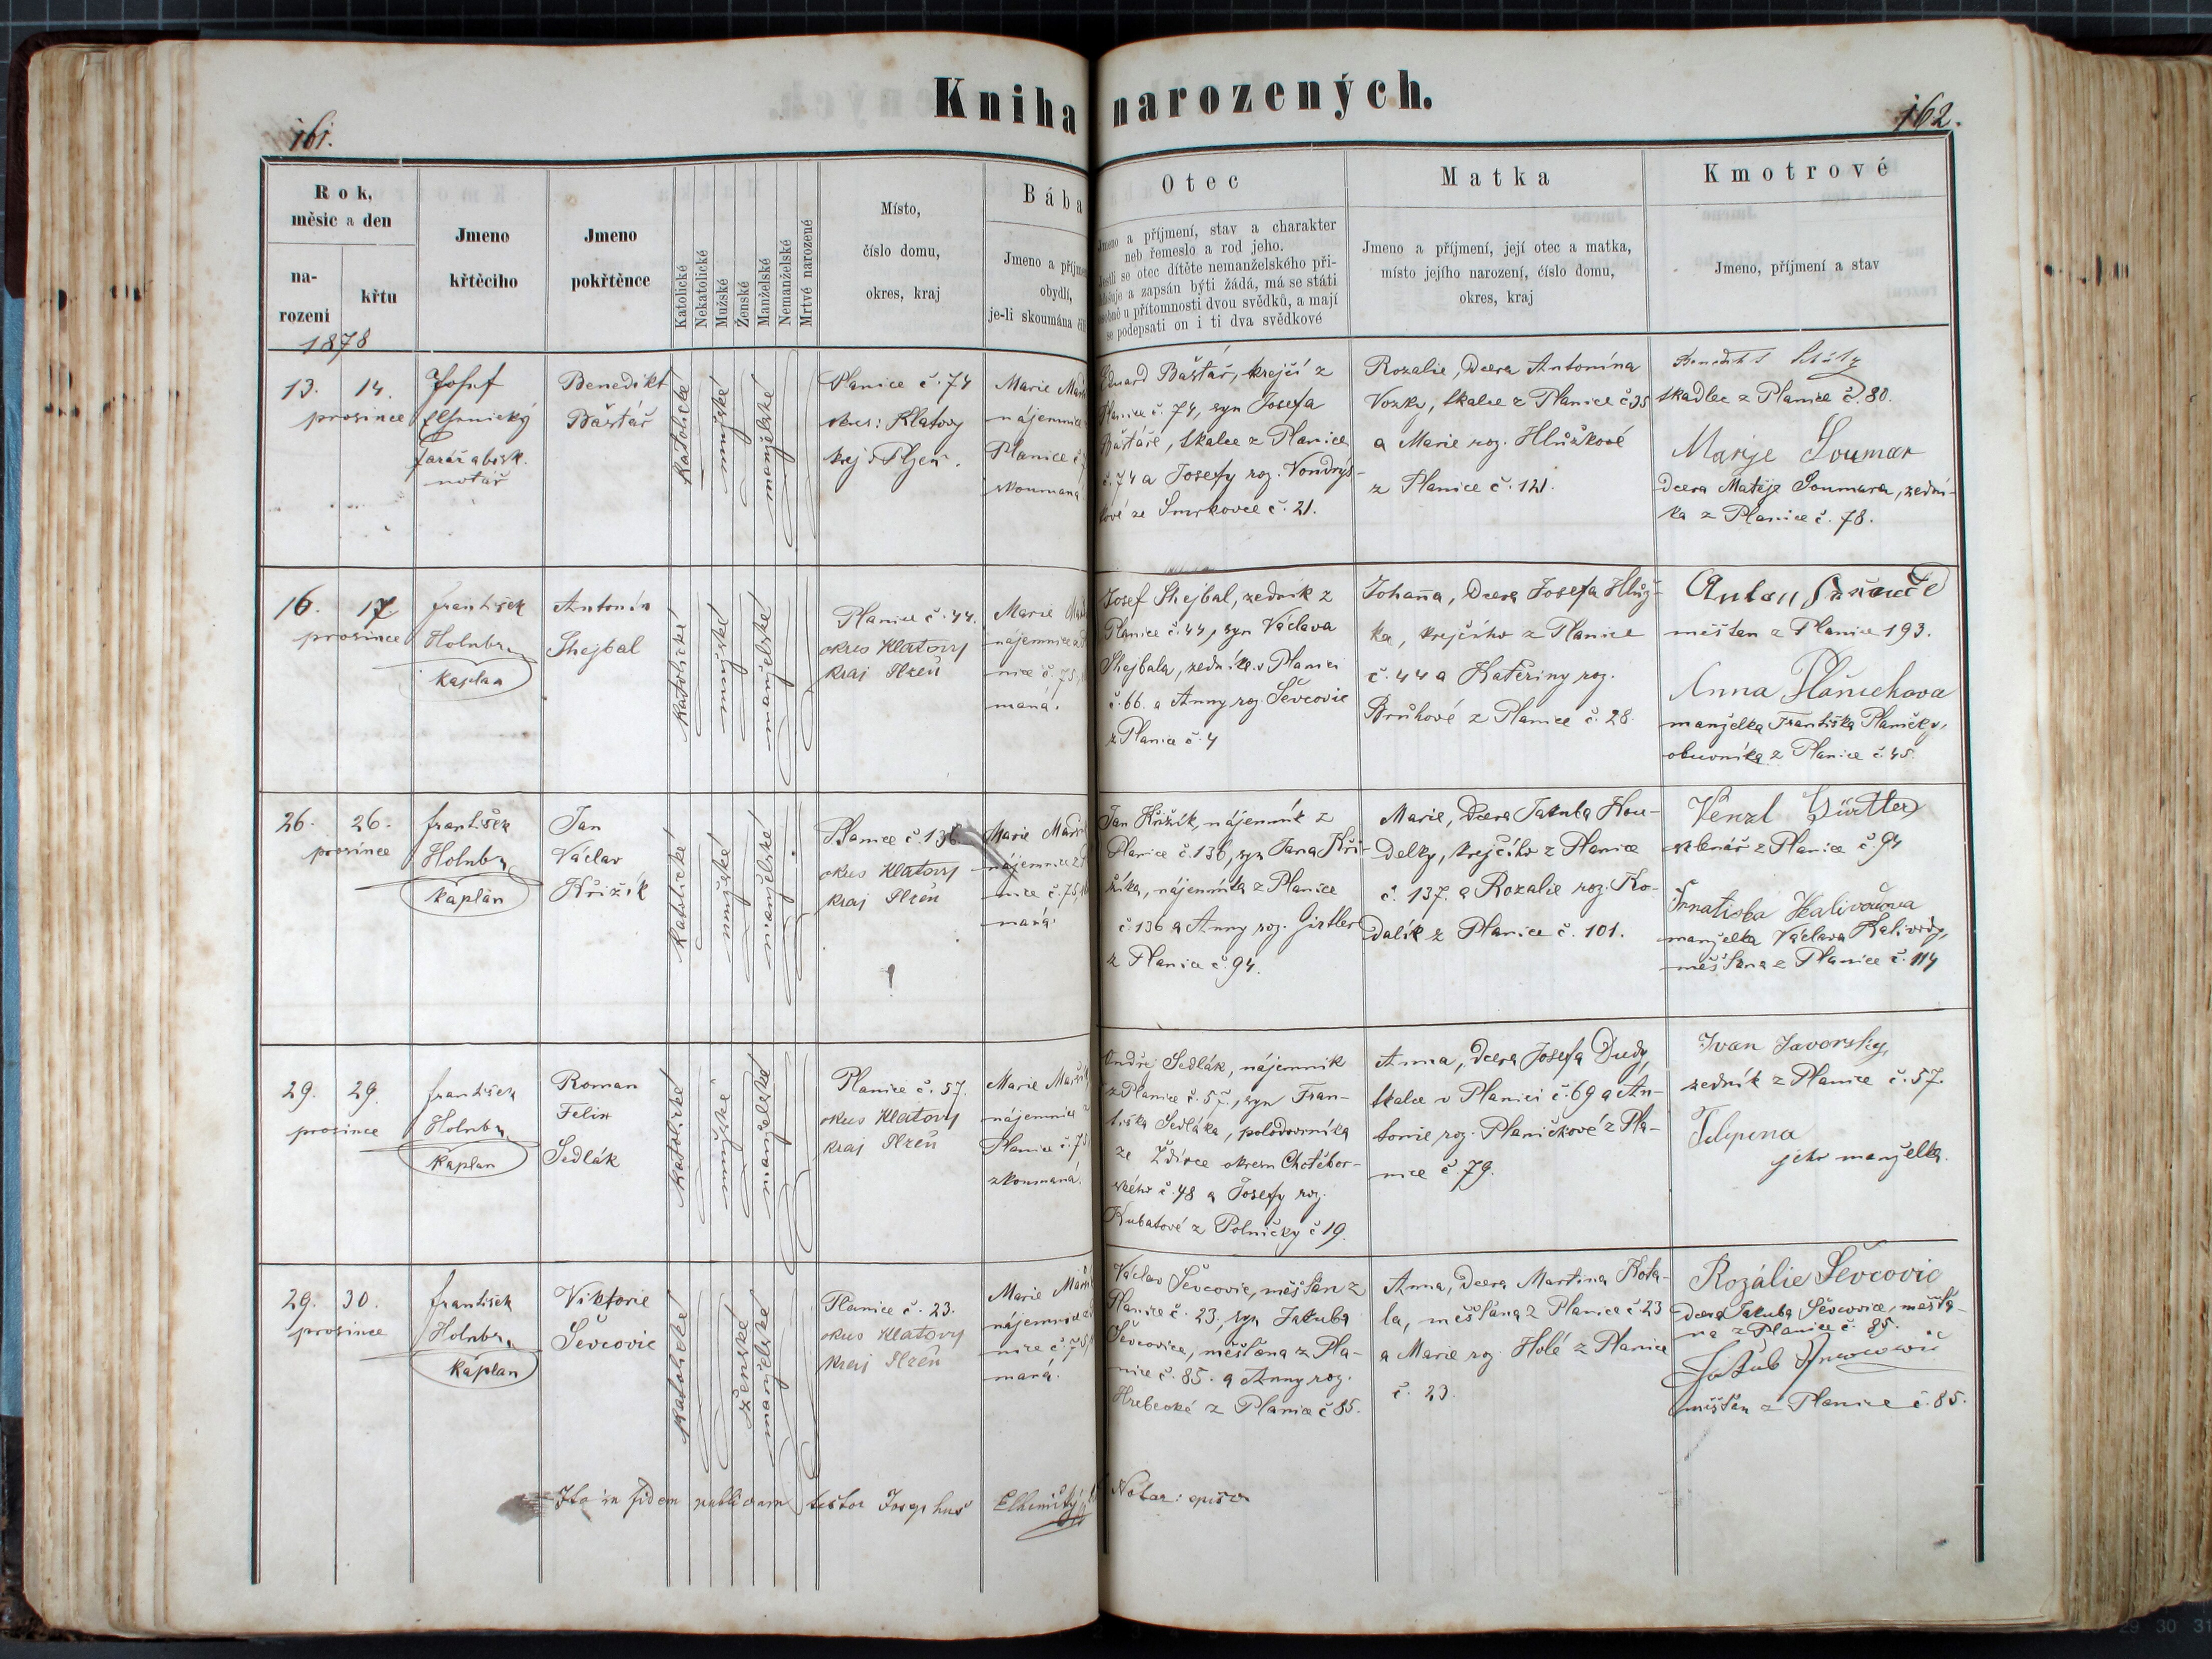 Kniha narozených.
161.
162.
Rok,
měsíc a den
na-
rození
křtu
Jmeno
křtěcího
Jmeno
pokřtěnce
Katolické
Nekatolické
Mužské
Ženské
Manželské
Nemanželské
Mrtvé narozené
Místo,
číslo domu,
okres, kraj
Bába
Jmeno a příjmení
obydlí,
je-li skoumána či
Otec
Jmeno a příjmení, stav a charakter
neb řemeslo a rod jeho.
Jestli se otec dítěte nemanželského při-
hlašuje a zapsán býti žádá, má se státi
osobně u přítomnosti dvou svědků, a mají
se podepsati on i ti dva svědkové
Matka
Jmeno a příjmení, její otec a matka,
místo jejího narození, číslo domu,
okres, kraj
Kmotrové
Jmeno, příjmení a stav
1878
13. 14.
prosince
Josef
farář a bisk.
notář
Benedikt
Baštář
katolické
mužské
manželské
Planice č. 74
okres: Klatovy
kraj: Plzeň.
Marie
nájemnice
Planice č.
skoumaná
Eduard Baštář, krejčí z
Planice č. 74, syn Josefa
Baštáře, tkalce z Planice
č. 74 a Josefy roz. Vondrys-
kové ze Smrkovce č. 21.
Rozalie, dcera Antonína
Vozky, tkalce z Planice č. 35
a Marie roz. Hlůžkové
z Planice č. 121.
Benedikt
tkadlec z Planice č. 80.
Marije Soumar
dcera Matěje Soumara, zední-
ka z Planice č. 78.
16. 17.
prosince
František
Holub
kaplan
Antonín
Shejbal
katolické
mužské
manželské
Planice č. 44.
okres Klatovy
kraj Plzeň
Marie
nájemnice
nice č. 75,
maná.
Josef Shejbal, zedník z
Planice č. 44, syn Václava
Shejbala, zedníka v Planici
č. 66. a Anny roz. Ševcovic
z Planice č. 4
Johanna, dcera Josefa Hlůž-
ka, krejčího z Planice
č. 44 a Kateřiny roz.
Brůhové z Planice č. 28.
Anton
měšťan z Planice 193.
Anna Planichova
manželka Františka Planičky,
obuvníka z Planice č. 45.
26. 26.
prosince
František
Holub
kaplan
Jan
Václav
Křižík
katolické
mužské
manželské
Planice č. 136.
okres Klatovy
kraj Plzeň
Marie
nájemnice z
nice č. 75,
maná.
Jan Křižík, nájemník z
Planice č. 136, syn Jana Kři-
žíka, nájemníka z Planice
č. 136 a Anny roz. Girtler
z Planice č. 94.
Marie, dcera Jakuba Hou-
delky, krejčího z Planice
č. 137. a Rozalie roz. Ko-
dalík z Planice č. 101.
Venzl Gürtler
z Planice č. 94
Kalivodova
manželka Václava Kalivody,
měšťana z Planice č. 114
29. 29.
prosince
František
Holub
kaplan
Roman
Felix
Sedlák
katolické
mužské
manželské
Planice č. 57.
okres Klatovy
kraj Plzeň
Marie
nájemnice z
Planice č. 75
zkoumaná.
Ondřej Sedlák, nájemník
z Planice č. 57., syn Fran-
tiška Sedláka, polodvorníka
ze Ždírce okresu Chotěbor-
ského č. 48 a Josefy roz.
Kubatové z Polničky č. 19.
Anna, dcera Josefa Dudy,
tkalce v Planici č. 69 a An-
tonie roz. Planičkové z Pla-
nice č. 79.
Ivan Javorsky,
zedník z Planice č. 57.
Filipina
jeho manželka.
29. 30.
prosince
František
Holub
kaplan
Viktorie
Ševcovic
katolické
ženské
manželské
Planice č. 23.
okres Klatovy
kraj Plzeň
Marie
nájemnice
nice č. 75,
maná.
Václav Ševcovic, měšťan z
Planice č. 23, syn Jakuba
Ševcovice, měšťana z Pla-
nice č. 85. a Anny roz.
z Planice č. 85.
Anna, dcera Martina Kota-
la, měšťana z Planice č. 23
a Marie roz. Holé z Planice
č. 23.
Rozálie Ševcovic
dcera Jakuba Ševcovice, měšťa-
na z Planice č. 85.
Jakub
měšťan z Planice č. 85.
Ita in fidem publicam testor Josephus